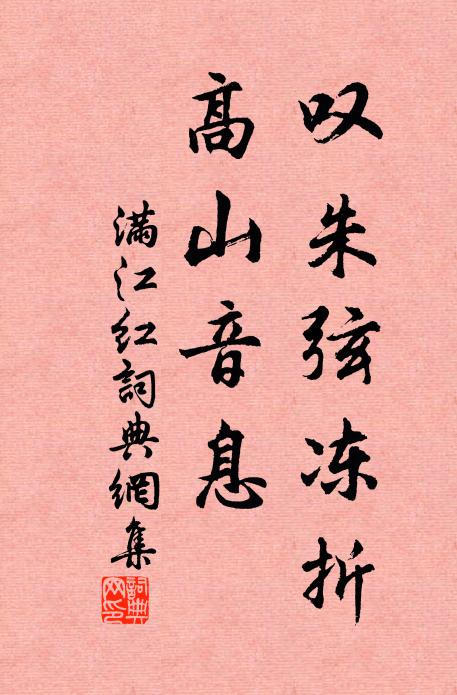 叹朱弦冻折
高山音息
满江红詞典網集
詞典
网印